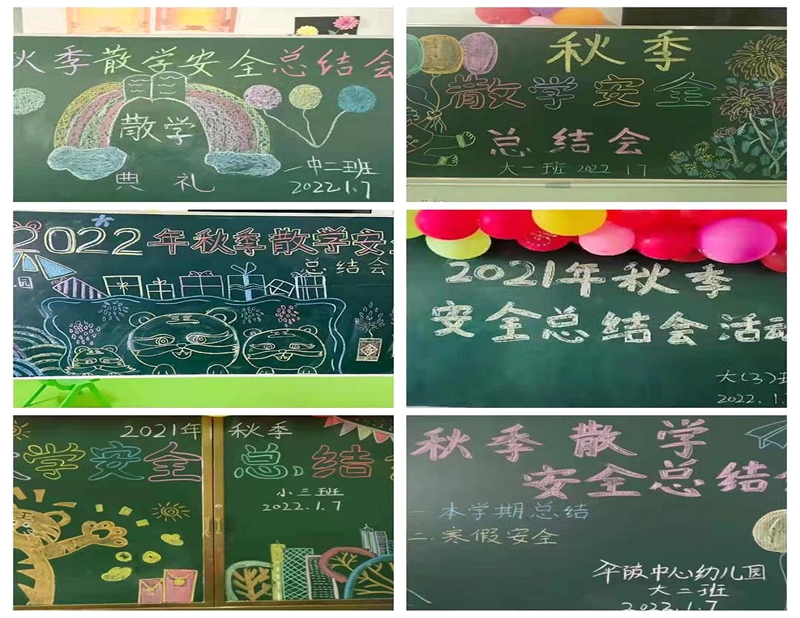 秋季散学安全总结会
散学
典礼
一中二班
2022.1.7
秋季
散学安全
总结会
大一班 2022.1.7
2022年秋季散学安全
总结会
园
2021年秋季
安全总结会活动
大(3)班
2022.1.
2021年 秋季
学安全 总结会
小三班
2022.1.7
秋季散学
安全总结会
一本学期总结
二.寒假安全
中心幼儿园
大二班
2022.1.7